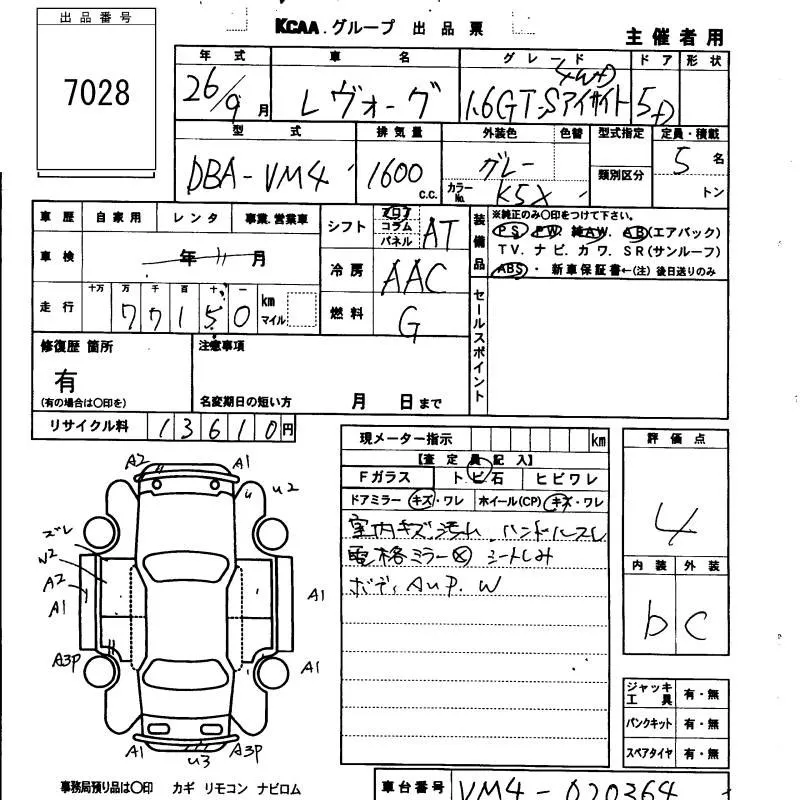 出品番号
7028
KCAA.グループ 出品票
主催者用
年式 車名 グレード ドア 形状
26/9月 レヴォーグ 4WD 1.6GT-Sアイサイト 5D
型式 排気量 外装色 色替 型式指定 定員・積載
DBA-VM4 1600 c.c. グレー カラーNo. K5X 類別区分 5名
トン
車歴 自家用 レンタ 事業.営業車
車検 年11月
走行 十万 万 千 百 十 一 km マイル
77150
シフト フロア コラム パネル AT
冷房 AAC
燃料 G
装備品
※純正のみ〇印をつけて下さい。
PS PW 純AW. AB(エアバック)
TV. ナビ. カワ. SR(サンルーフ)
ABS・新車保証書←(注)後日送りのみ
セールスポイント
修復歴 箇所
有
(有の場合は〇印を)
注意事項
名変期日の短い方 月 日まで
リサイクル料 13610円
現メーター指示 km
【査定員記入】
Fガラス トビ石 ヒビワレ
ドアミラー キズ・ワレ ホイール(CP) キズ・ワレ
室内キズ汚ム ハンドルスレ
電格ミラー✕ シートしみ
ボディAUP.W
評価点
4
内装 外装
b C
ジャッキ工具 有・無
パンクキット 有・無
スペアタイヤ 有・無
A2 A1
U2
ズレ
W2
A2
A1 A1
A3P A1
A1 U3 A3P
事務局預り品は〇印 カギ リモコン ナビロム
車台番号 VM4-020364